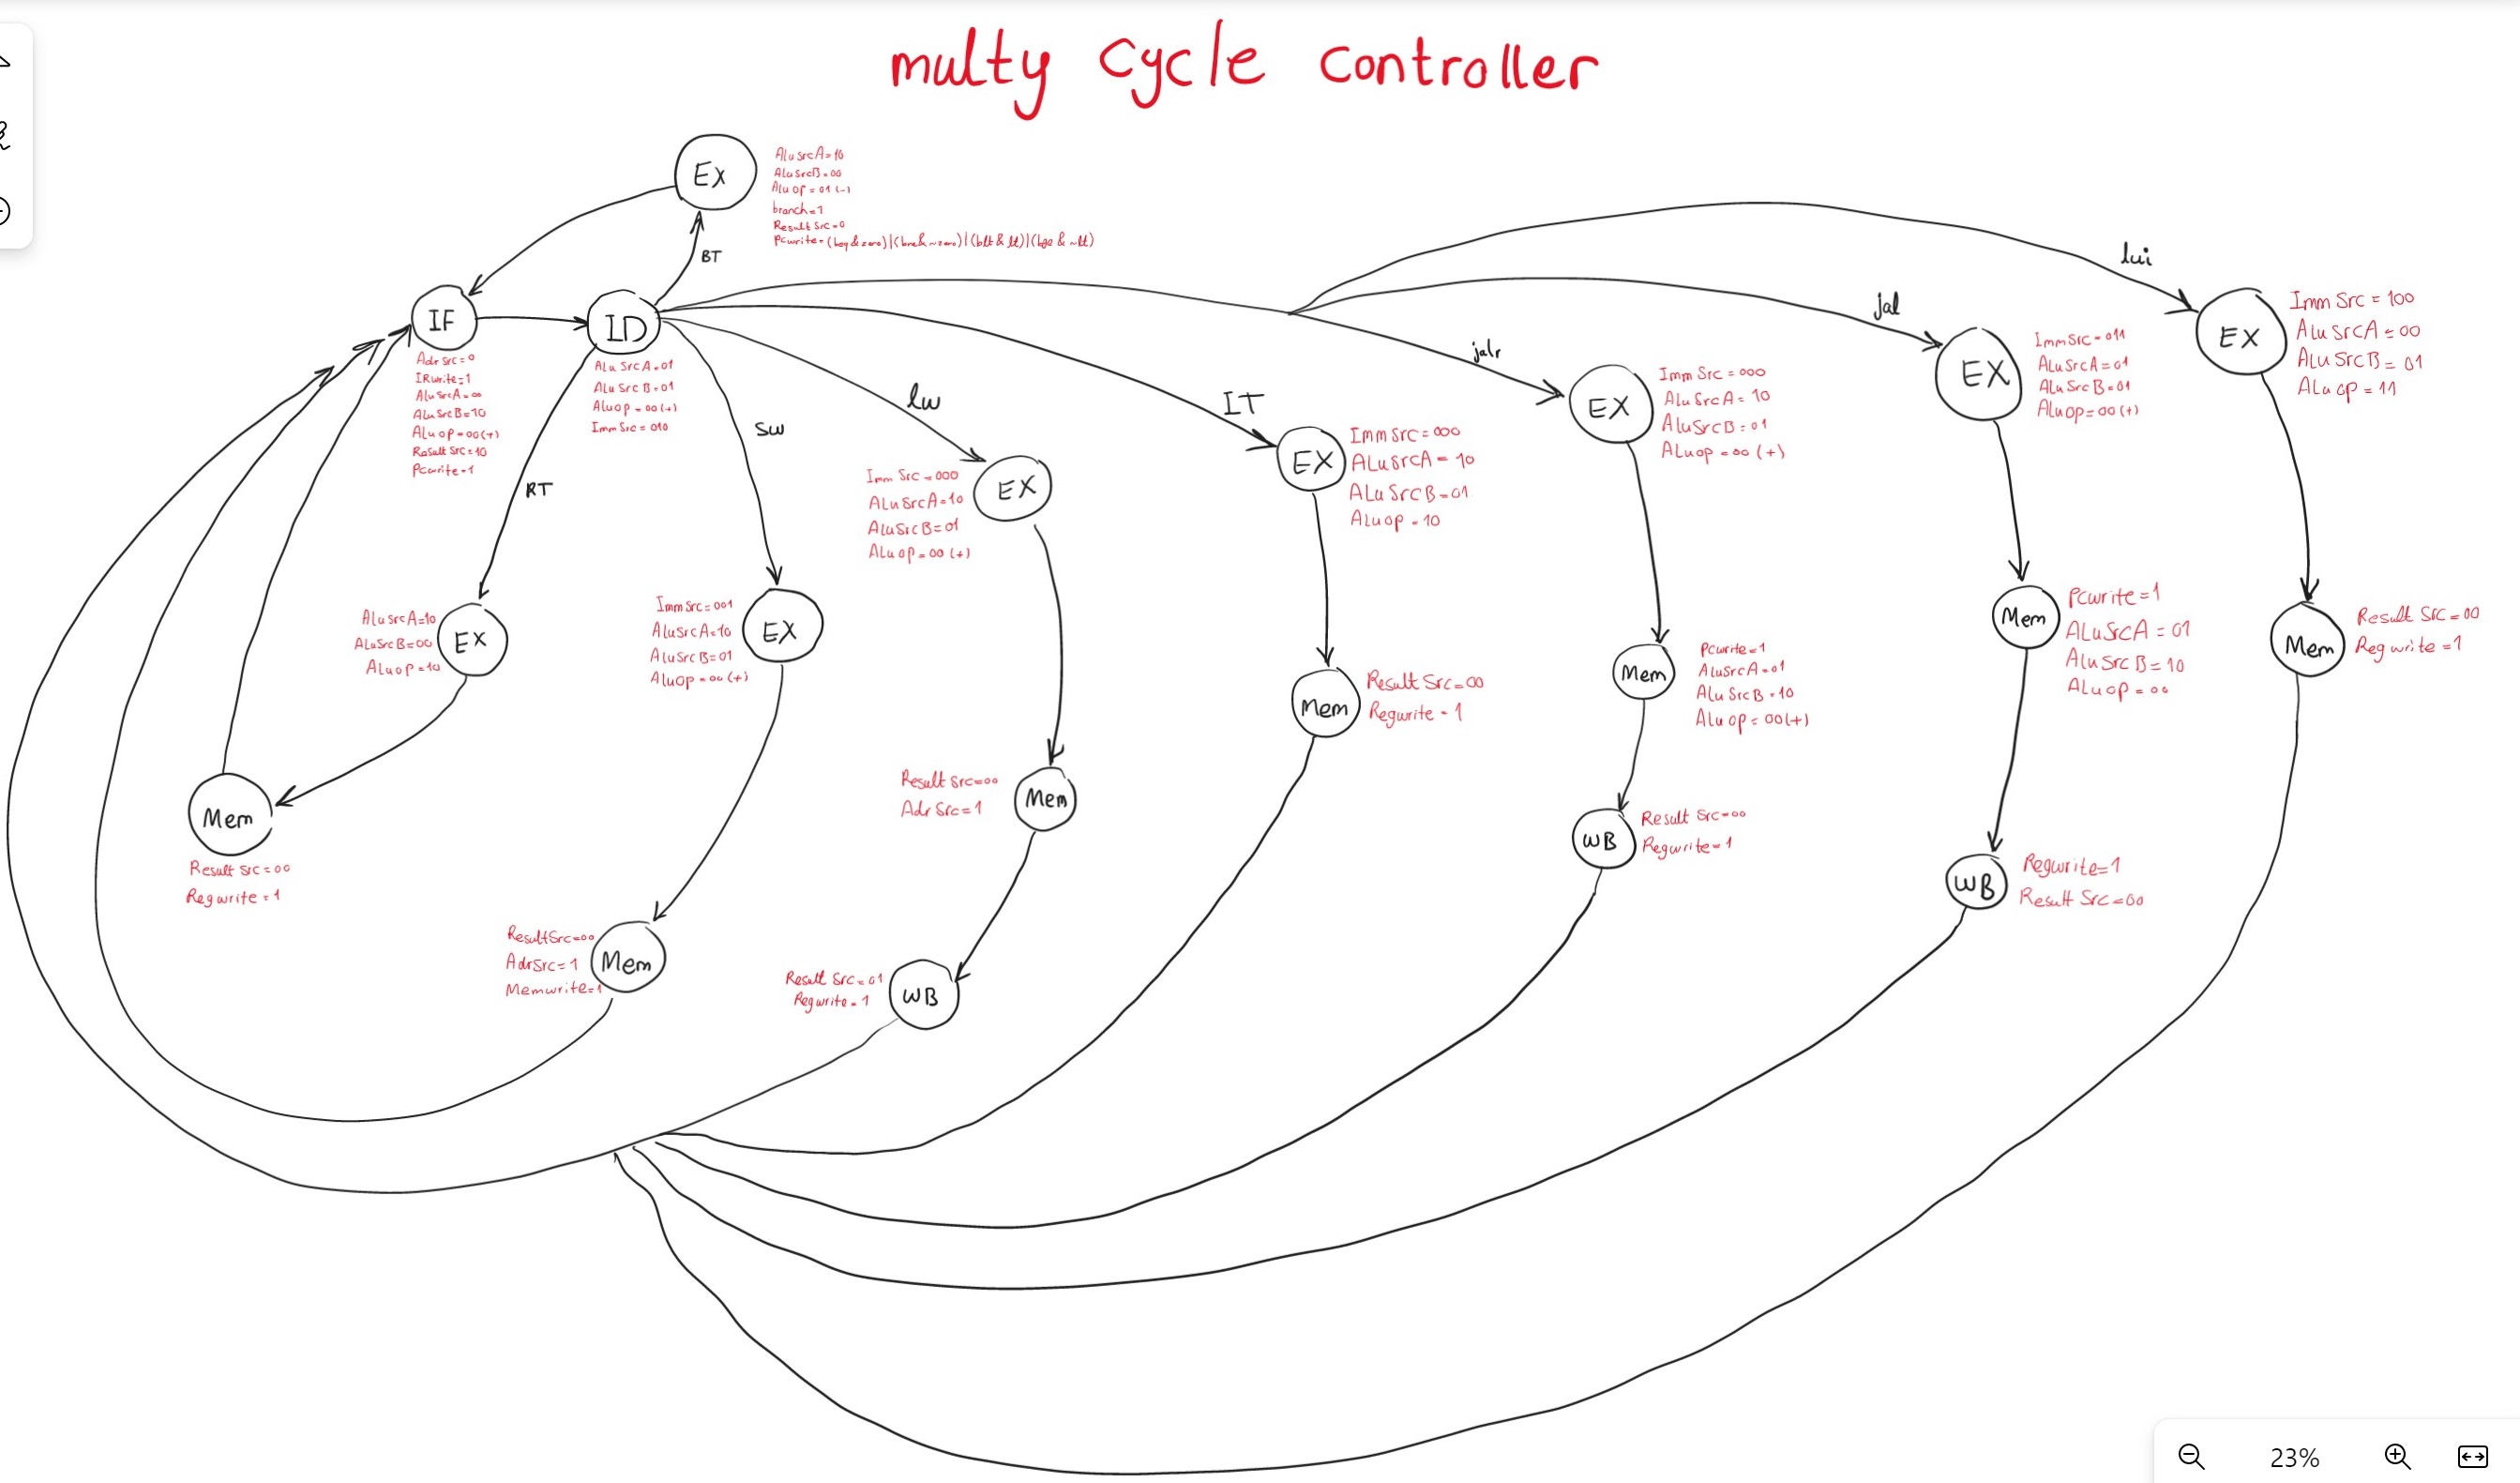 multy cycle controller
Ex
AluSrcA=10
AluSrcB=00
Aluop=01 (-)
branch=1
Result Src=0
Pcwrite=(beq & zero)|(bne & ~zero)|(blt & lt)|(bge & ~lt)
BT
IF
Adr Src=0
IRwrite=1
AluSrcA=00
AluSrcB=10
Aluop=00(+)
Rasult Src=10
Pcwrite=1
ID
Alu SrcA=01
Alu SrcB=01
Aluop=00(+)
Imm Src=010
RT
EX
AlusrcA=10
ALuSrcB=00
Aluop=10
Mem
Result Src=00
Regwrite=1
sw
EX
Imm Src=001
AlusrcA=10
AluSrcB=01
Aluop=00(+)
Mem
ResultSrc=00
AdrSrc=1
Memwrite=1
lw
EX
Imm Src=000
ALuSrcA=10
AluSrcB=01
ALuop=00(+)
Mem
Result Src=00
Adr Src=1
WB
Result Src=01
Regwrite=1
IT
EX
Imm Src=000
ALuSrcA=10
ALuSrcB=01
Aluop=10
Mem
Result Src=00
Regwrite=1
jalr
EX
Imm Src=000
AluSrcA=10
AluSrcB=01
Aluop=00(+)
Mem
Pcwrite=1
AluSrcA=01
Alu SrcB=10
Aluop=00(+)
WB
Result Src=00
Regwrite=1
jal
EX
ImmSrc=011
AluSrcA=01
Alu SrcB=01
Aluop=00(+)
Mem
Pcwrite=1
ALuSrcA=01
Alu SrcB=10
Aluop=00
WB
Regwrite=1
Result Src=00
lui
EX
Imm Src=100
Alu SrcA=00
Alu SrcB=01
Alu op=11
Mem
Result Src=00
Reg write=1
23%